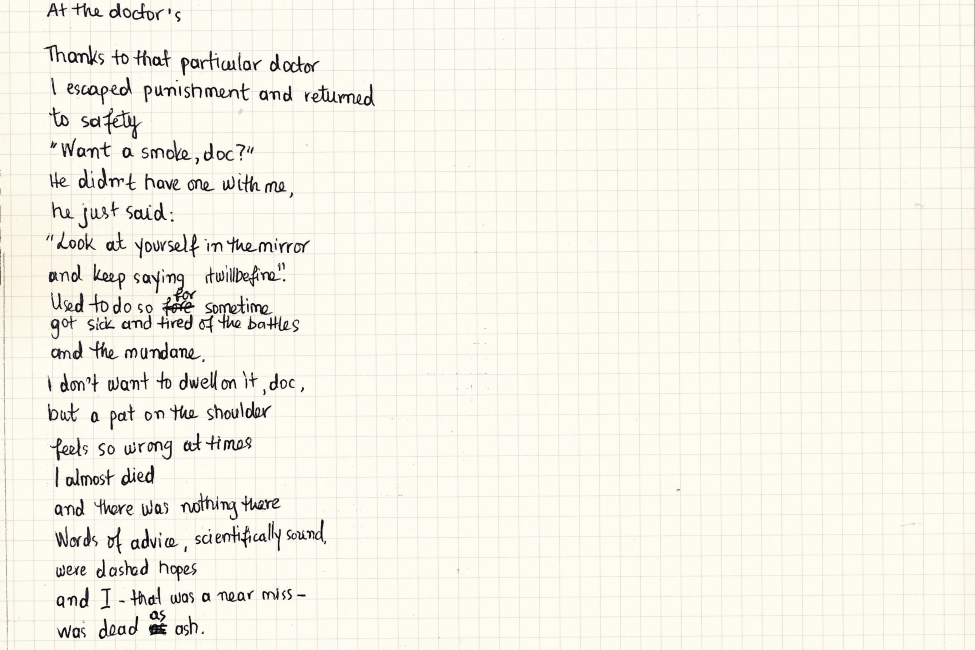 At the doctor's
Thanks to that particular doctor
I escaped punishment and returned
to safety
"Want a smoke, doc?"
He didn't have one with me,
he just said:
"Look at yourself in the mirror
and keep saying itwillbefine".
Used to do so for sometime
got sick and tired of the battles
and the mundane.
I don't want to dwell on it, doc,
but a pat on the shoulder
feels so wrong at times
I almost died
and there was nothing there
Words of advice, scientifically sound,
were dashed hopes
and I - that was a near miss -
was dead as ash.